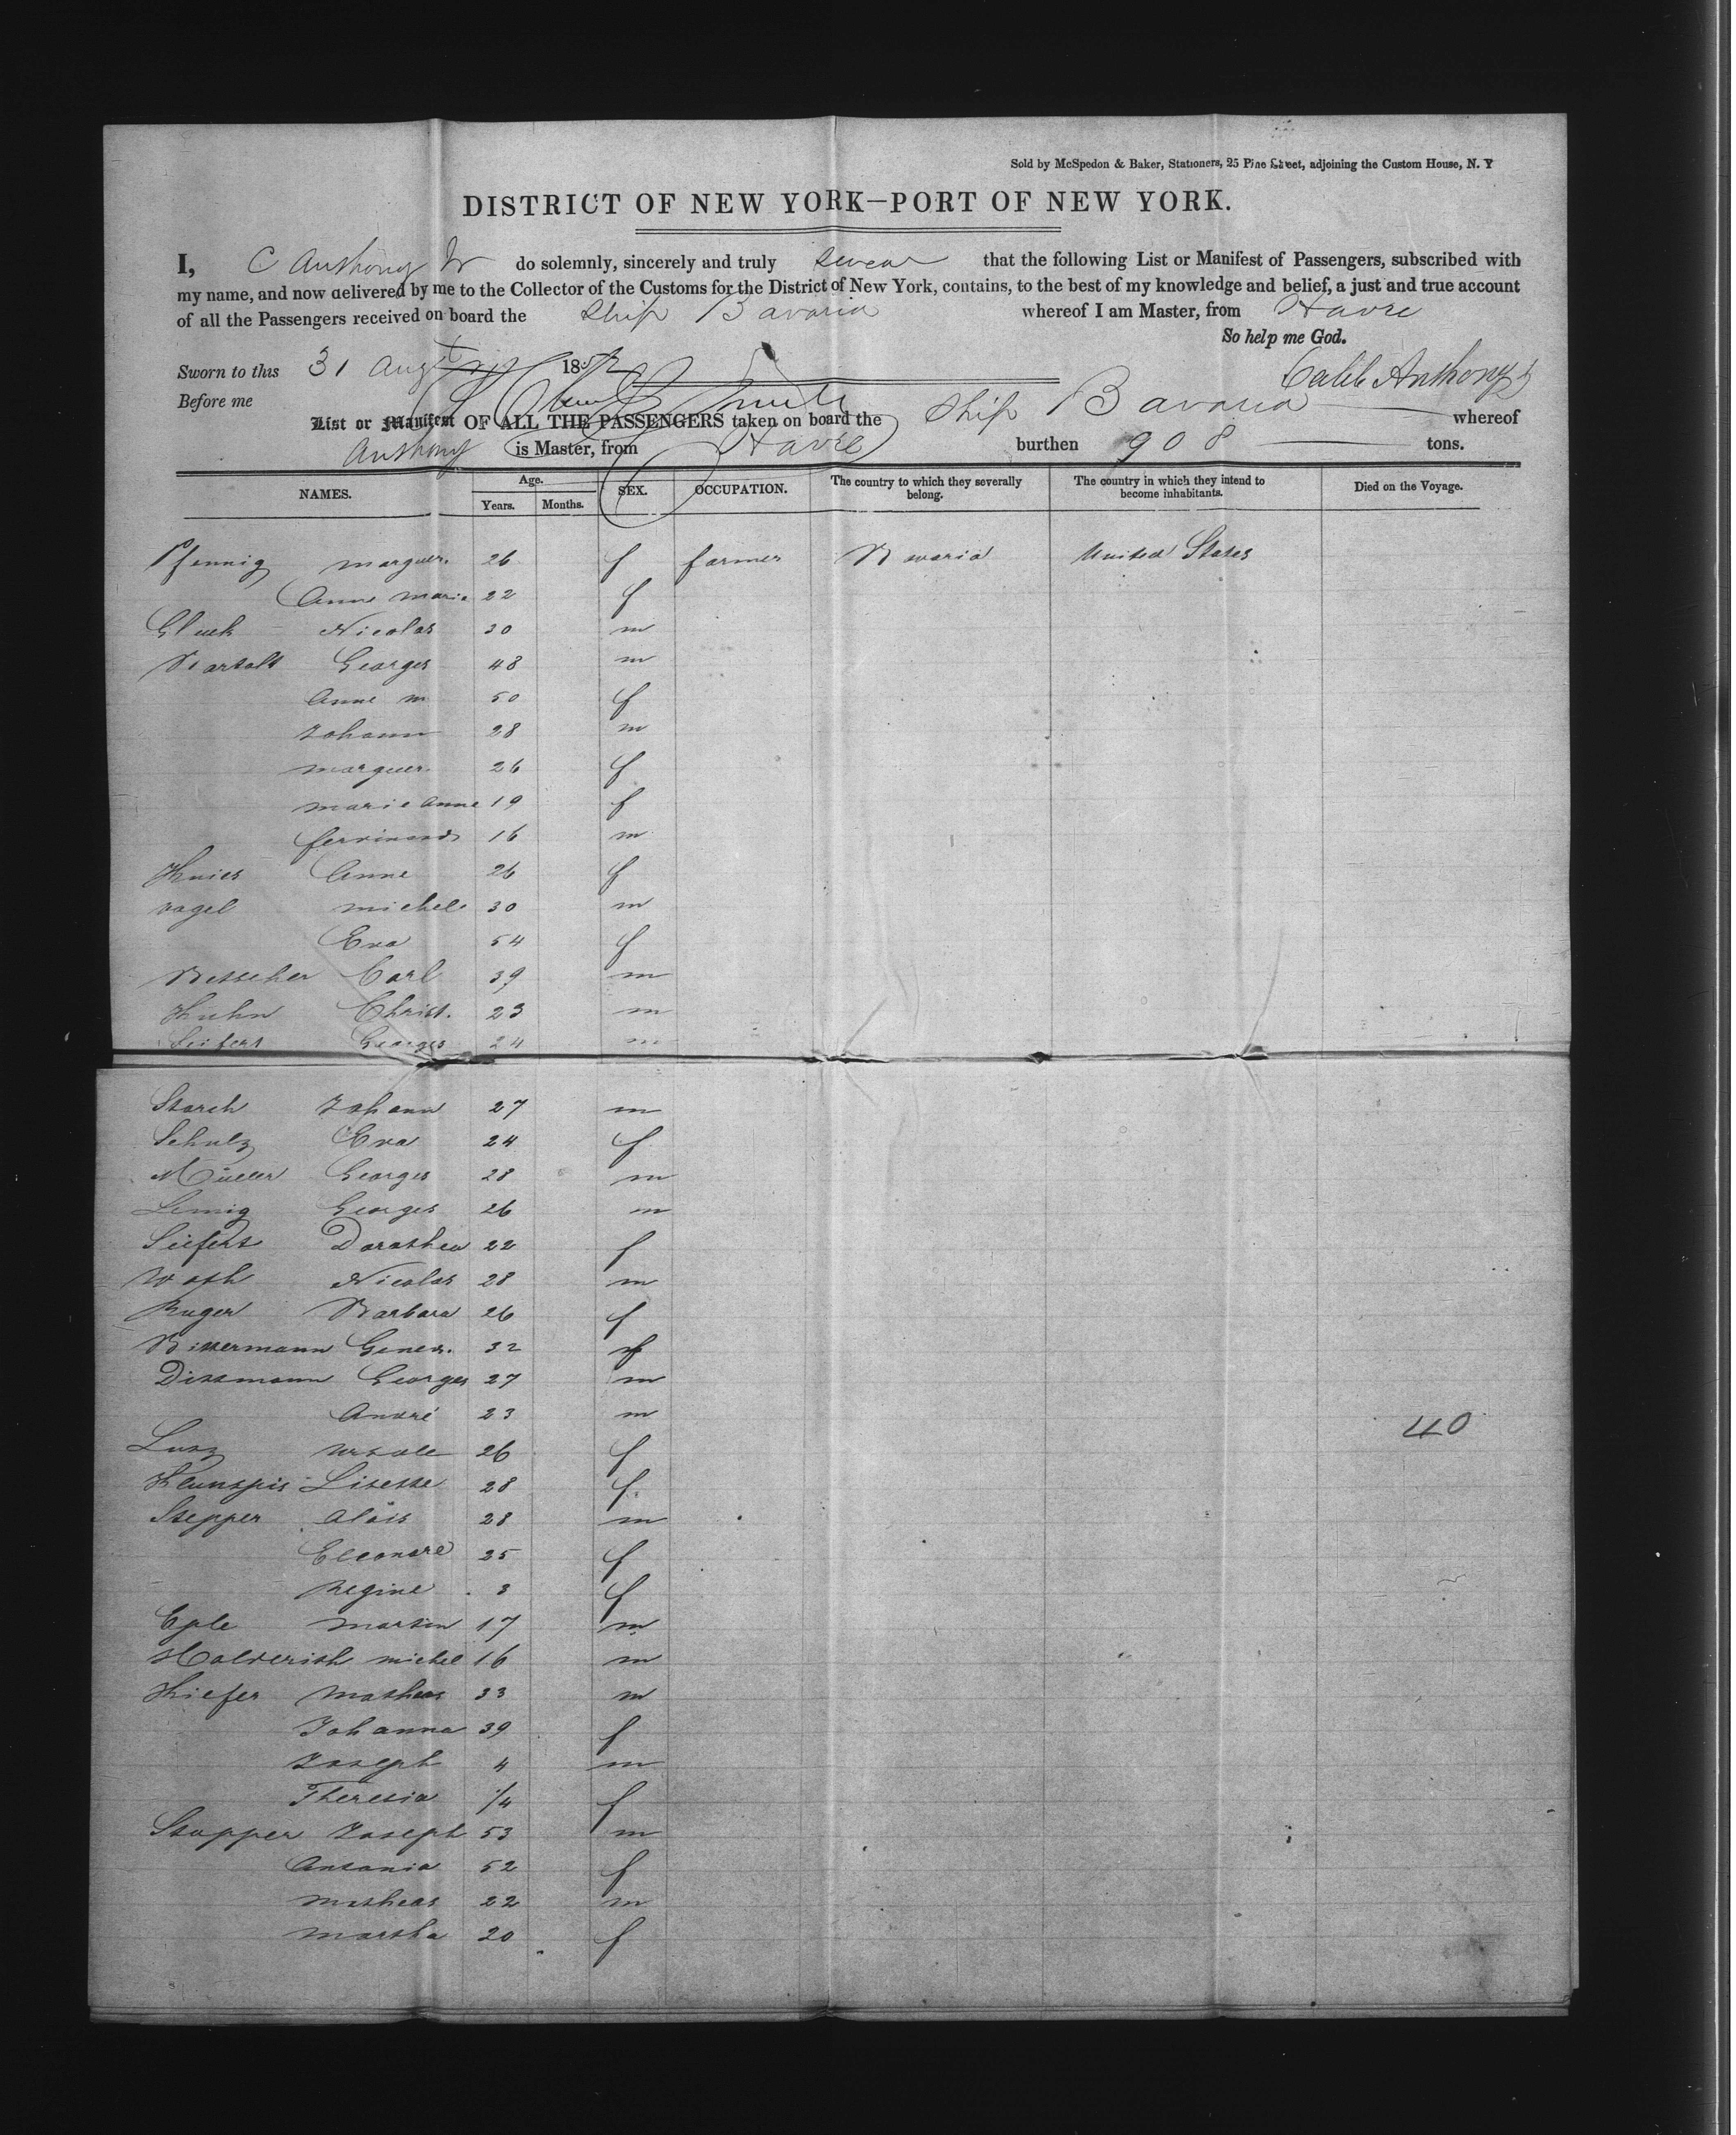 Sold by McSpedon & Baker, Stationers, 25 Pine Street, adjoining the Custom House, N. Y
DISTRICT OF NEW YORK—PORT OF NEW YORK.
I, C Anthony Jr do solemnly, sincerely and truly swear that the following List or Manifest of Passengers, subscribed with
my name, and now delivered by me to the Collector of the Customs for the District of New York, contains, to the best of my knowledge and belief, a just and true account
of all the Passengers received on board the Ship Bavaria whereof I am Master, from Havre
So help me God.
Sworn to this 31 Augt 1852
Caleb Anthony Jr
Before me
List or Manifest OF ALL THE PASSENGERS taken on board the Ship Bavaria whereof
Anthony is Master, from Havre burthen 908 tons.
NAMES. Age. Years. Months. SEX. OCCUPATION. The country to which they severally belong. The country in which they intend to become inhabitants. Died on the Voyage.
Pfennig marguer. 26 f farmer Bavaria United States
Anne Marie 22 f
Gluck Nicolas 30 m
Bartalt Georges 48 m
Anne m 50 f
Johann 28 m
marguer. 26 f
marie anne 19 f
ferdinand 16 m
Knies Anne 26 f
vogel michel 30 m
Eva 54 f
Betscher Carl 39 m
Kuhn Christ. 23 m
Seifert Georges 24 m
Storch Johann 27 m
Schulz Eva 24 f
Müller Georges 28 m
Lennig Georges 26 m
Seifert Dorothea 22 f
Nicolas 28 m
Ruger Barbara 26 f
Bittermann Genev. 32 f
Dissmann Georges 27 m
André 23 m
40
Lutz ursule 26 f
Lisette 28 f.
Stepper Aloïs 28 m
Eleonore 25 f
Regine 3 f
Eple martin 17 m
Holderith michel 16 m
Kiefer Matheas 33 m
Johanna 39 f
Joseph 4 m
Theresia 1/4 f
Stopper Joseph 53 m
Antonia 52 f
Matheas 22 m
Martha 20 f